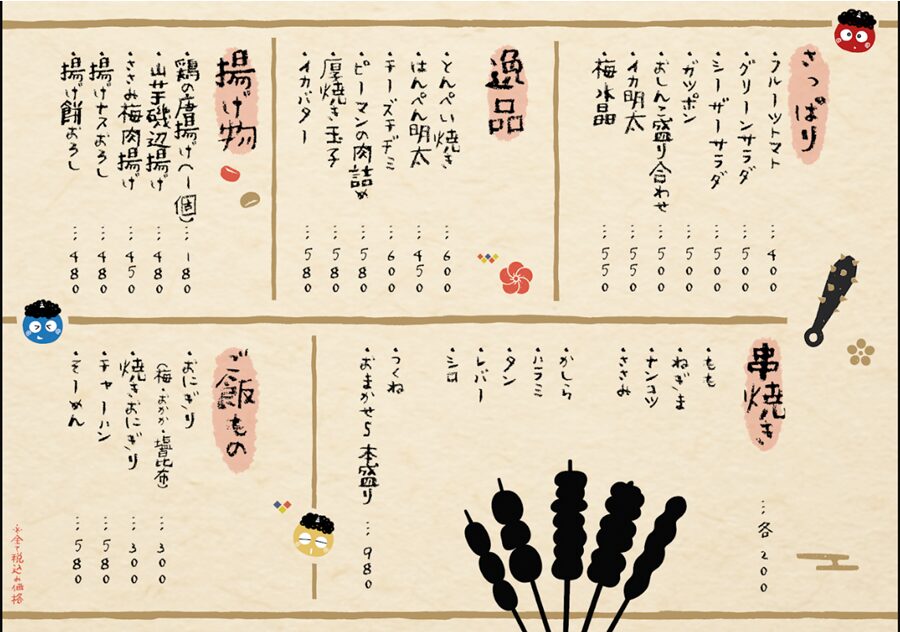 さっぱり
・フルーツトマト …400
・グリーンサラダ …500
・シーザーサラダ …500
・ガツポン …500
・おしんこ盛り合わせ …500
・イカ明太 …550
・梅水晶 …550
逸品
・とんぺい焼き …600
・はんぺん明太 …450
・チーズチヂミ …600
・ピーマンの肉詰め …580
・厚焼き玉子 …580
・イカバター …580
揚げ物
・鶏の唐揚げ(一個) …180
・山芋磯辺揚げ …480
・ささみ梅肉揚げ …450
・揚げナスおろし …480
・揚げ餅おろし …480
串焼き …各200
・もも
・ねぎま
・ナンコツ
・ささみ
・かしら
・ハラミ
・タン
・レバー
・シロ
・つくね
・おまかせ5本盛り …980
ご飯もの
・おにぎり
(梅・おかか・塩昆布) …300
・焼きおにぎり …300
・チャーハン …580
・そーめん …580
※全て税込み価格